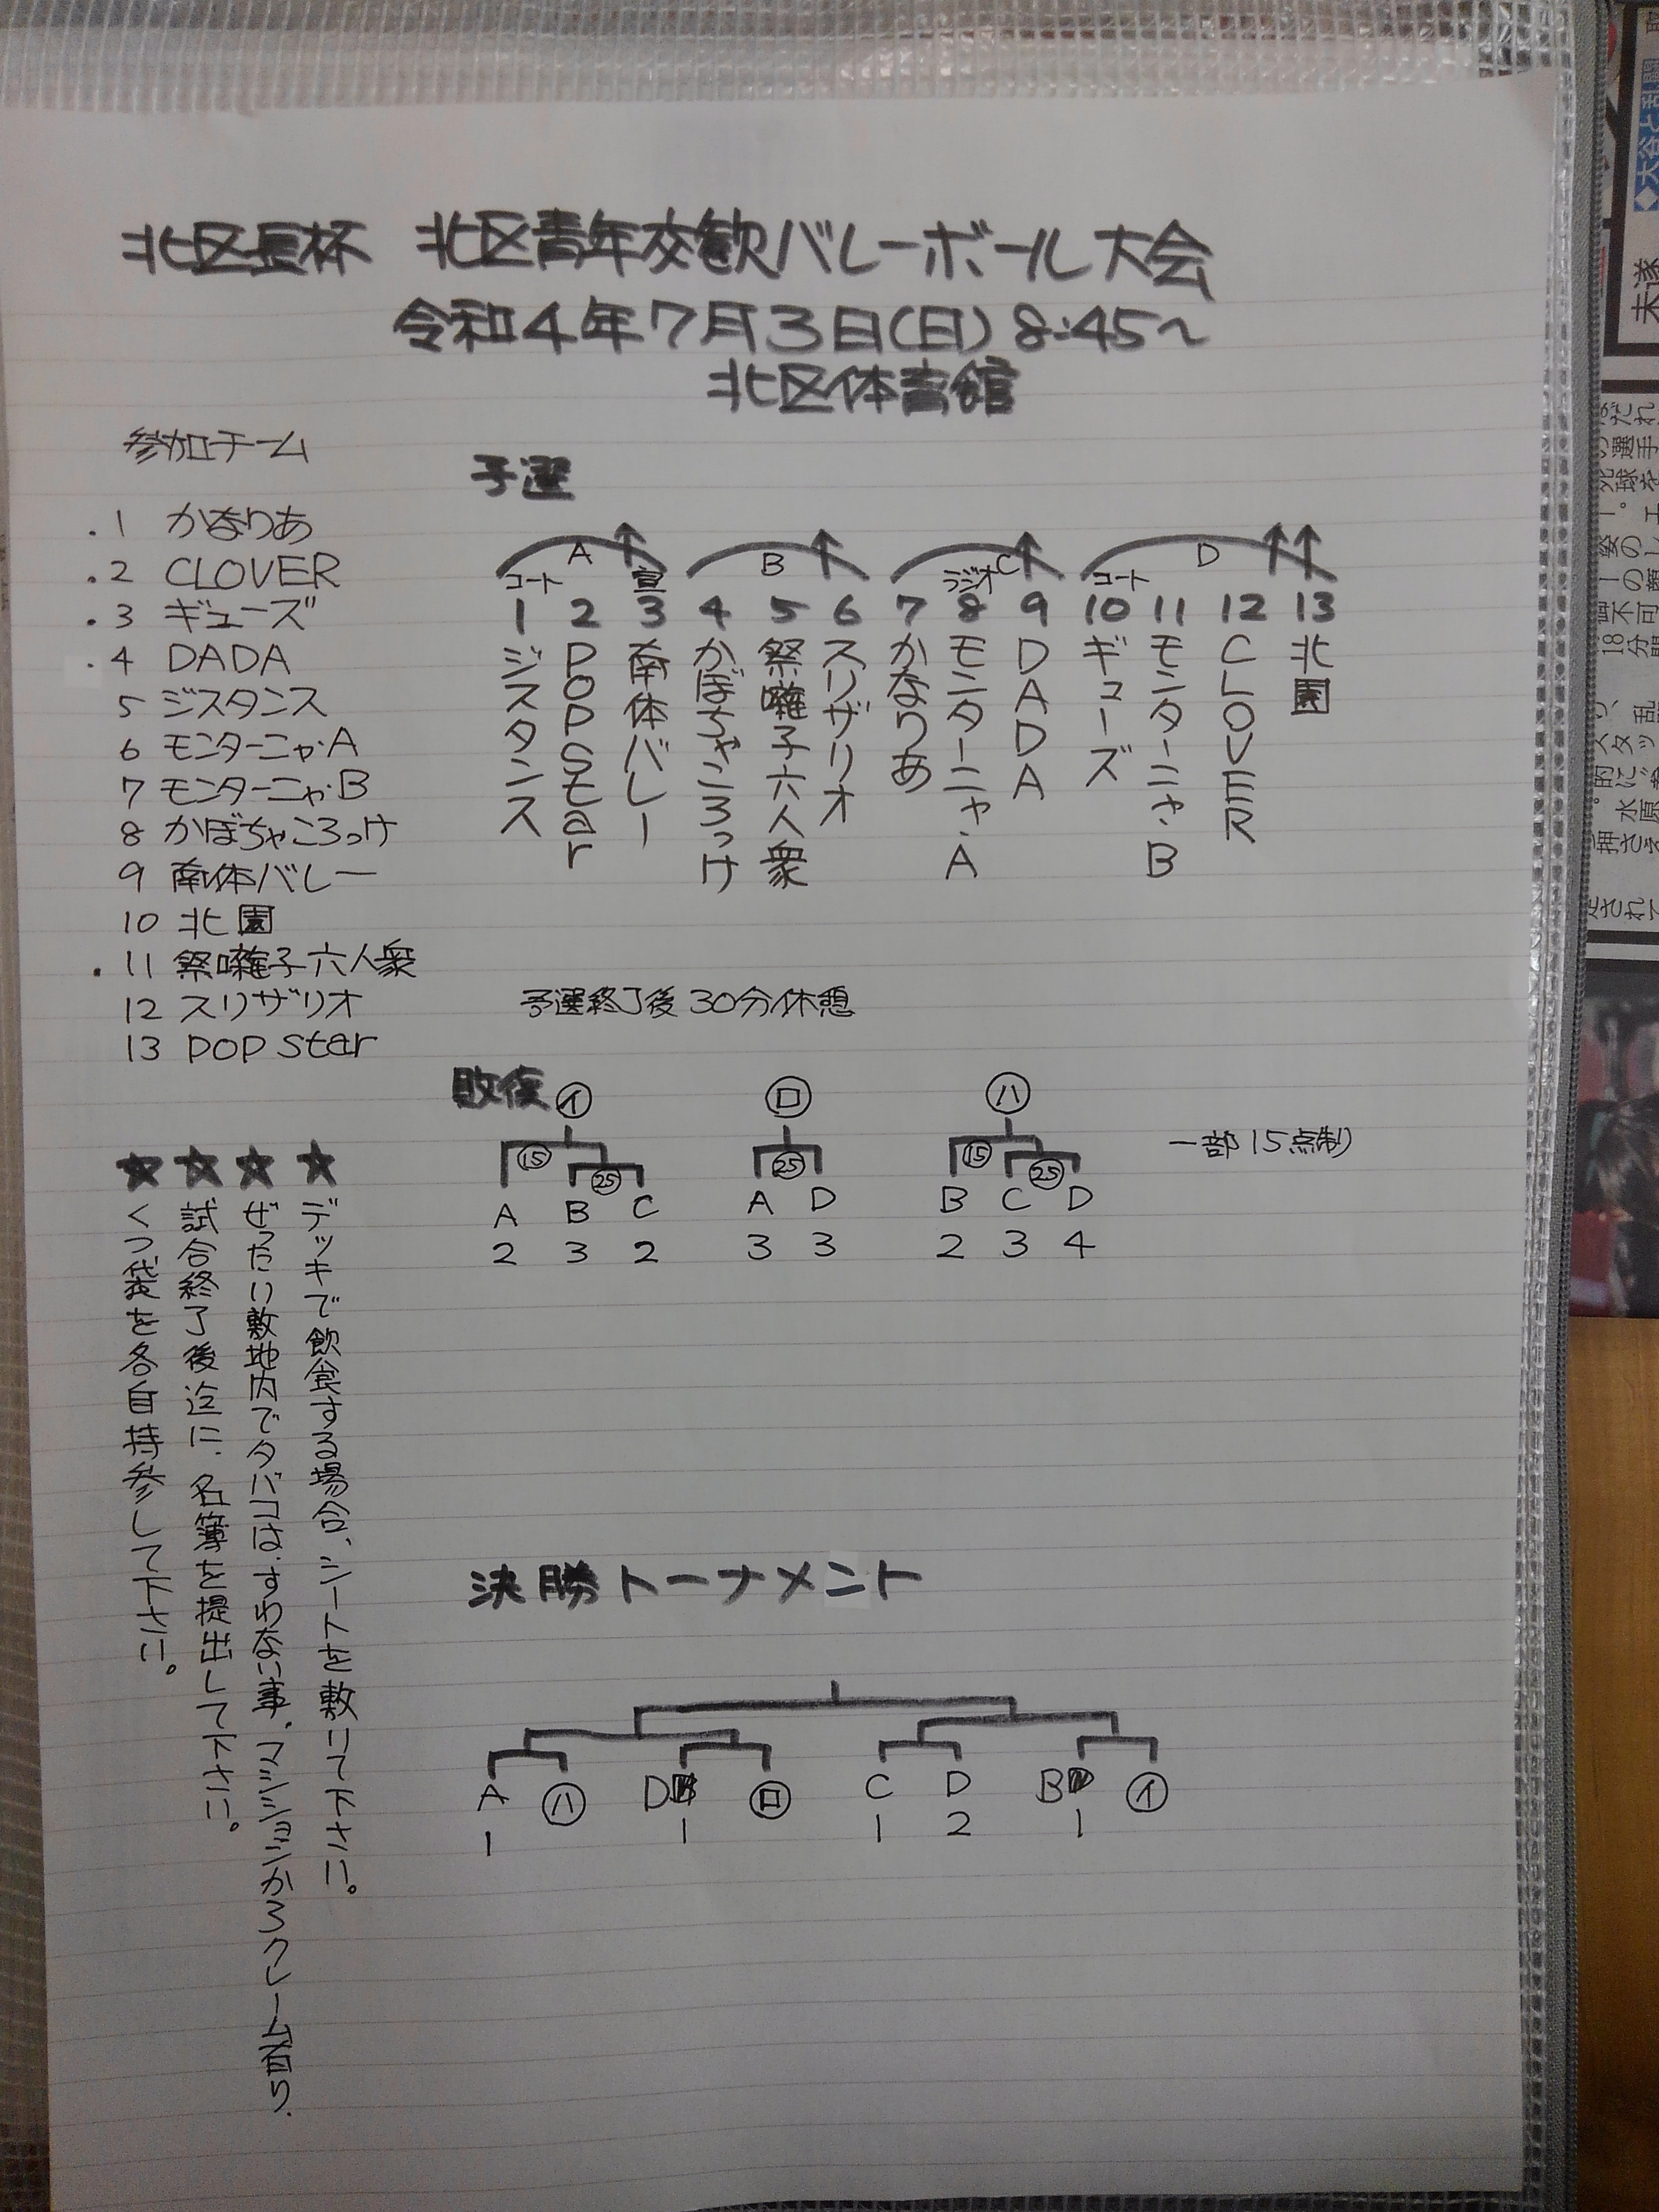 北区長杯 北区青年交歓バレーボール大会
令和4年7月3日(日) 8:45〜
北区体育館
参加チーム
.1 かなりあ
.2 CLOVER
.3 ギューズ
.4 DADA
5 ジスタンス
6 モンターニャ・A
7 モンターニャ・B
8 かぼちゃころっけ
9 南体バレー
10 北園
.11 祭囃子六人衆
12 スリザリオ
13 POP Star
予選
A B C D
コート 宣 ラジオ コート
1 2 3 4 5 6 7 8 9 10 11 12 13
ジスタンス
POP Star
南体バレー
かぼちゃころっけ
祭囃子六人衆
スリザリオ
かなりあ
モンターニャ・A
DADA
ギューズ
モンターニャ・B
CLOVER
北園
予選終了後30分休憩
敗復 イ ロ ハ
15 25 25 15 25
一部15点制
A B C A D B C D
2 3 2 3 3 2 3 4
★デッキで飲食する場合、シートを敷いて下さい。
★ぜったい敷地内でタバコは、すわない事、マンションからクレーム有り、
★試合終了後迄に、名簿を提出して下さい。
★くつ袋を各自持参して下さい。
決勝トーナメント
A ハ D ロ C D B イ
1 1 1 2 1
大谷と
未遂
だれ
の選手
球を
姿の
不可
18分間
スタッ
的に
水原
押さえ
されて